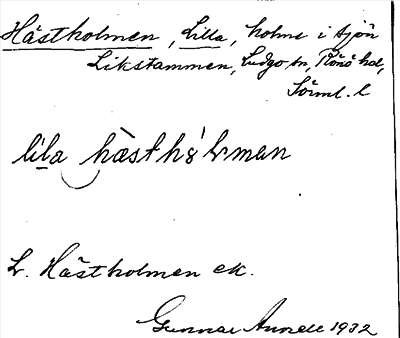 Hästholmen, Lilla, holme i sjön
Likstammen, Ludgo sn, Rönö hd,
Sörml. l
lila hästhòlman
L. Hästholmen ek.
Gunnar 1932